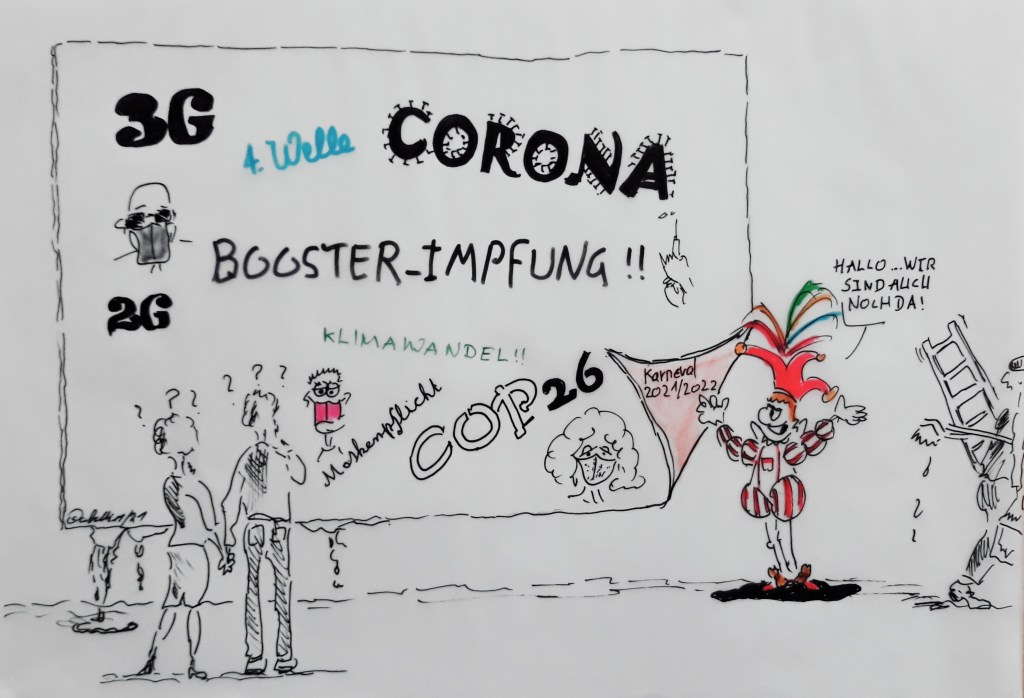 3G
4. Welle
CORONA
BOOSTER-IMPFUNG !!
2G
KLIMAWANDEL!!
Maskenpflicht
COP26
Karneval
2021/2022
HALLO...WIR
SIND AUCH
NOCH DA!
? ? ? ? ?